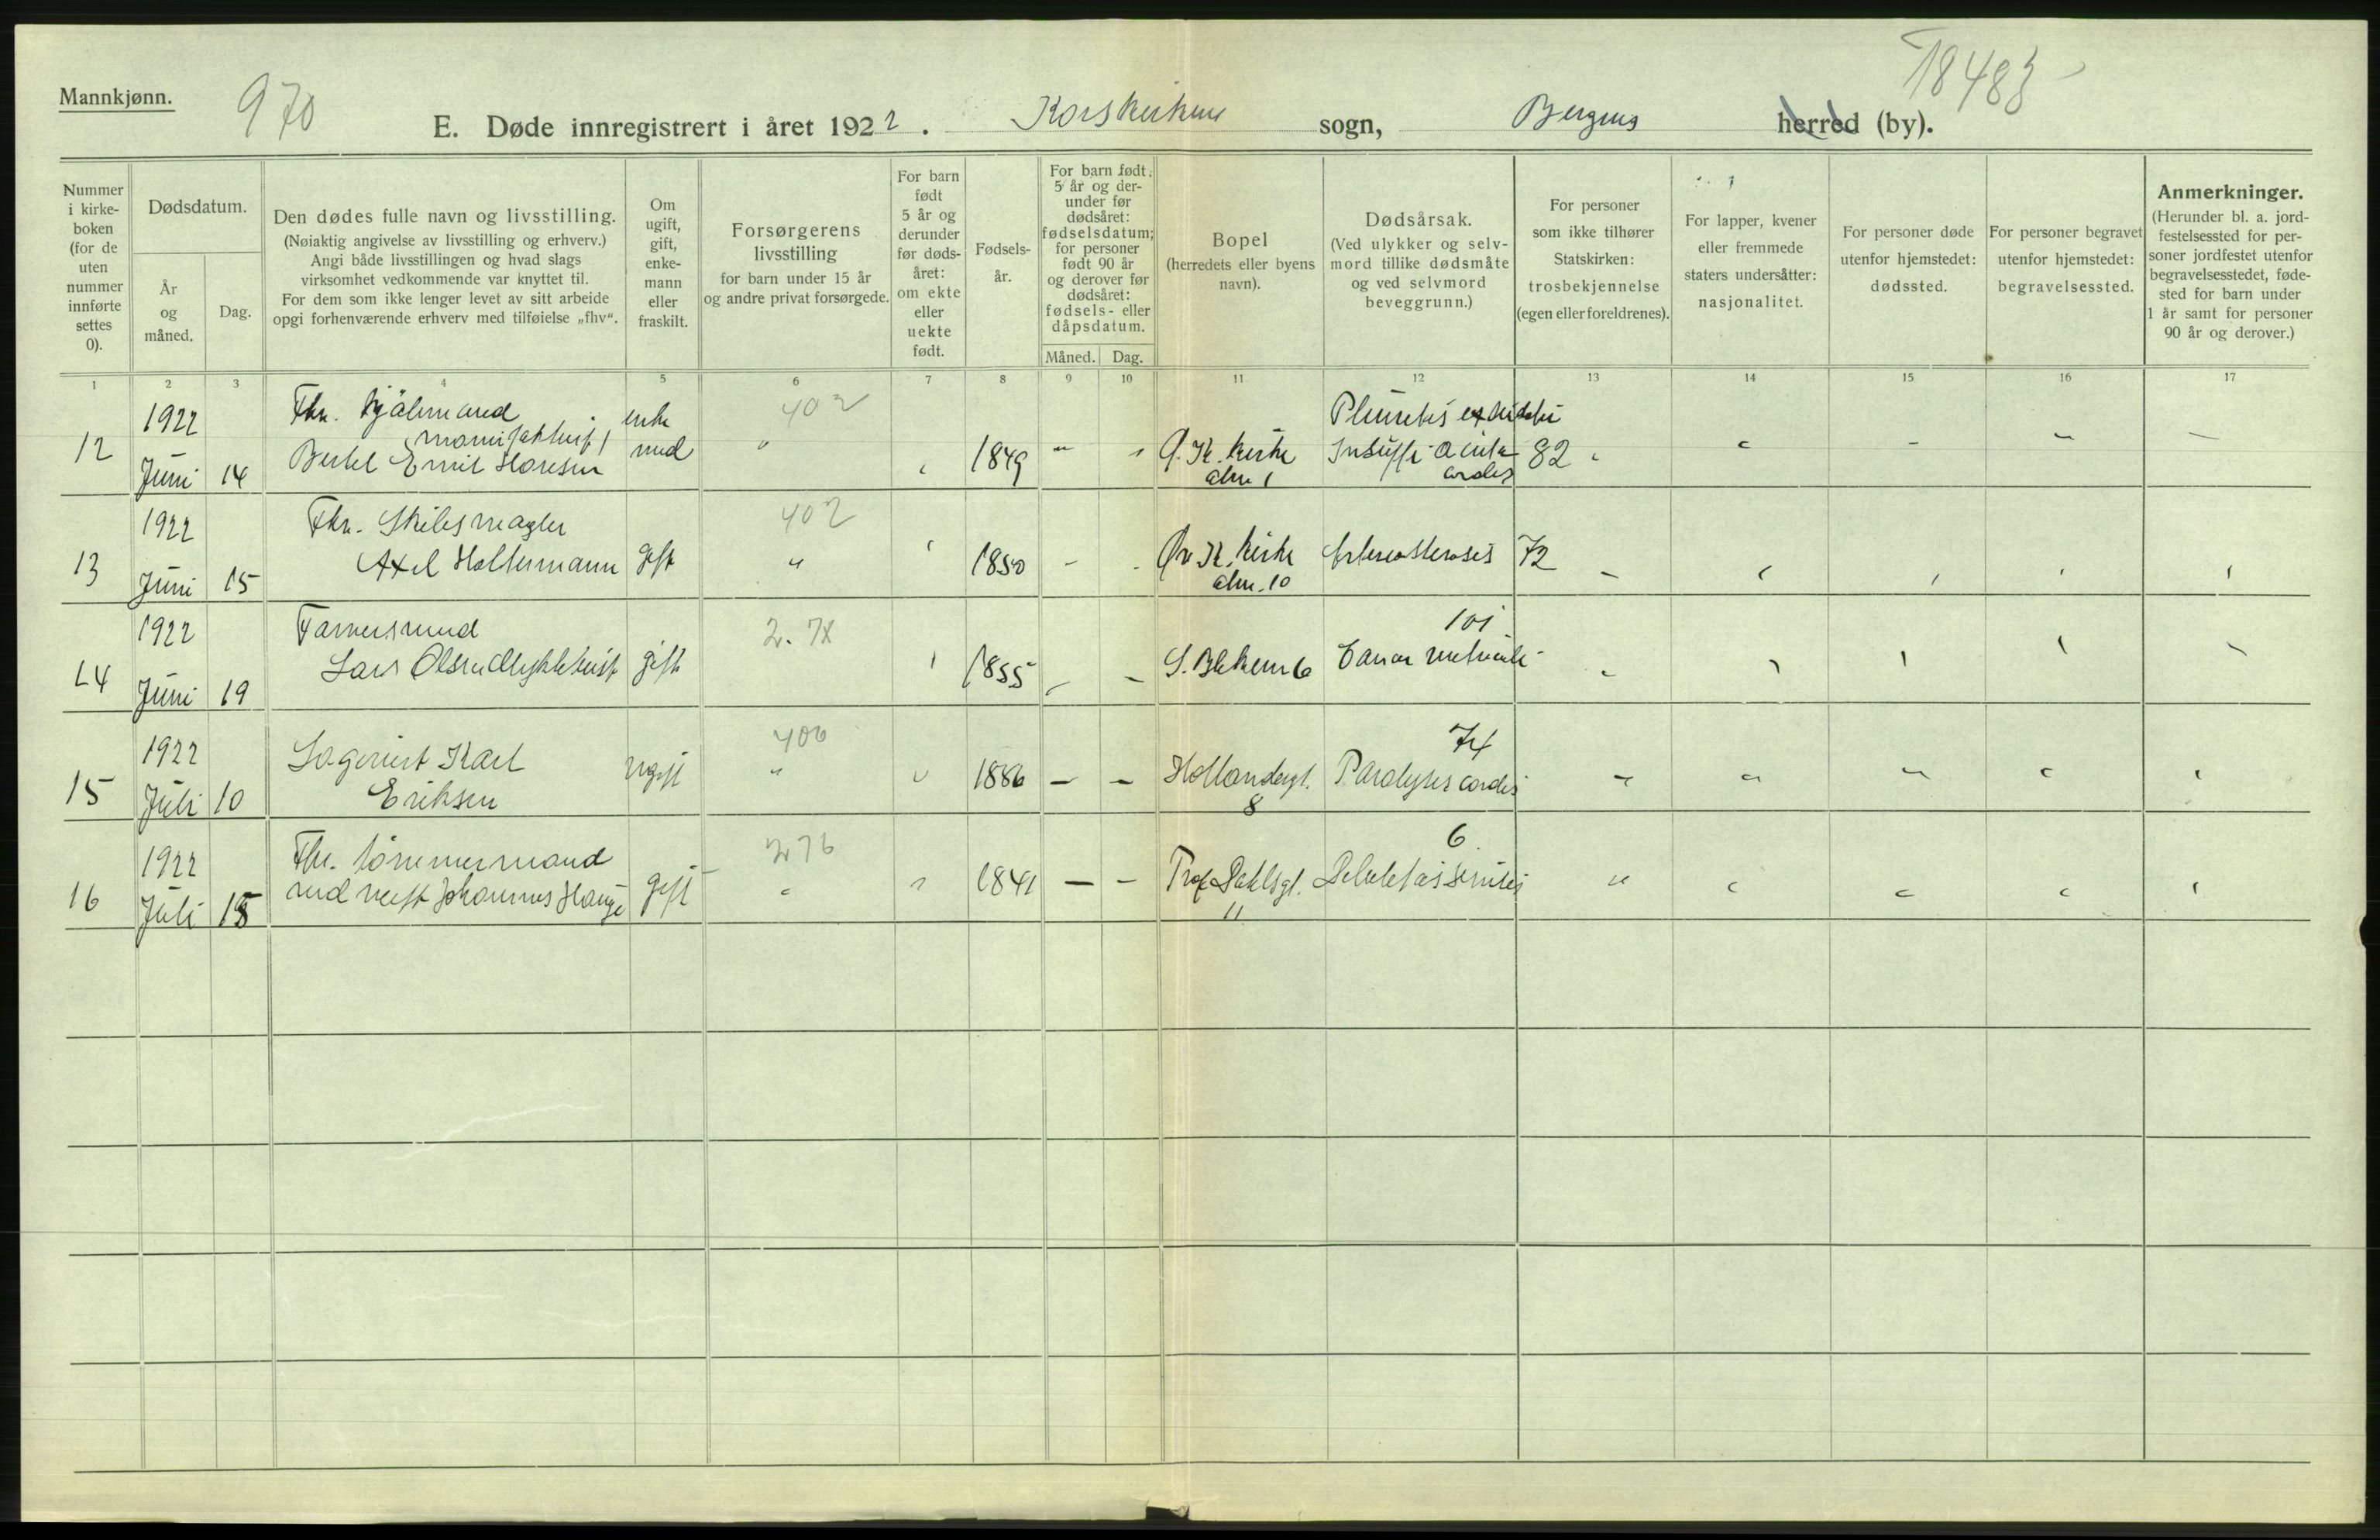 Mannkjønn.
970
18483
E. Døde innregistrert i året 1922. Korskirkens sogn, Bergens herred (by).
Nummer i kirke-boken (for de uten nummer innførte settes 0).
Dødsdatum.
År og måned.
Dag.
Den dødes fulle navn og livsstilling.
(Nøiaktig angivelse av livsstilling og erhverv.)
Angi både livsstillingen og hvad slags
virksomhet vedkommende var knyttet til.
For dem som ikke lenger levet av sitt arbeide
opgi forhenværende erhverv med tilføielse „fhv“.
Om ugift, gift, enke-mann eller fraskilt.
Forsørgerens
livsstilling
for barn under 15 år
og andre privat forsørgede.
For barn født 5 år og derunder før døds-året: om ekte eller uekte født.
Fødsels-år.
For barn født 5 år og der-under før dødsåret: fødselsdatum; for personer født 90 år og derover før dødsåret: fødsels- eller dåpsdatum.
Måned. Dag.
Bopel
(herredets eller byens
navn).
Dødsårsak.
(Ved ulykker og selv-
mord tillike dødsmåte
og ved selvmord
beveggrunn.)
For personer
som ikke tilhører
Statskirken:
trosbekjennelse
(egen eller foreldrenes).
For lapper, kvener
eller fremmede
staters undersåtter:
nasjonalitet.
For personer døde
utenfor hjemstedet:
dødssted.
For personer begravet
utenfor hjemstedet:
begravelsessted.
Anmerkninger.
(Herunder bl. a. jord-
festelsessted for per-
soner jordfestet utenfor
begravelsesstedet, føde-
sted for barn under
1 år samt for personer
90 år og derover.)
1 2 3 4 5 6 7 8 9 10 11 12 13 14 15 16 17
12 1922 Juni 14 Fhv.
Bertel Emil Hansen enke
mand 402 " 1849 - Kirke
alm 1 82
13 1922 Juni 15 Fhv. Skibsmægler
Axel Holtermann gift 402 " 1850 - Øv. K. Kirke
alm. 10 Arteriosclerosis 72
14 1922 Juni 19
Lars Olsen gift 2. 78 1855 - 6 Cancer ventriculi 101
15 1922 Juli 10 Karl
Eriksen ugift 406 " 1886 - - Hollandergt.
8 Paralysis cordis 74
16 1922 Juli 15 Fhv. tømmermand
Johannes Hauge gift 276 1841 - - Prof Dahlsgt.
11 Debilitas senilis 6